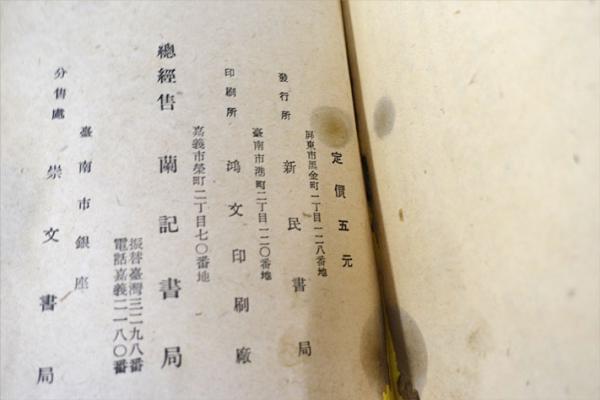 定價五元
屏東市黑金町一丁目一二八番地
發行所 新民書局
臺南市港町二丁目一二〇番地
印刷所 鴻文印刷廠
嘉義市榮町二丁目七〇番地
總經售 蘭記書局
振替臺灣三二九八番
電話嘉義二一八〇番
臺南市銀座
分售處 崇文書局